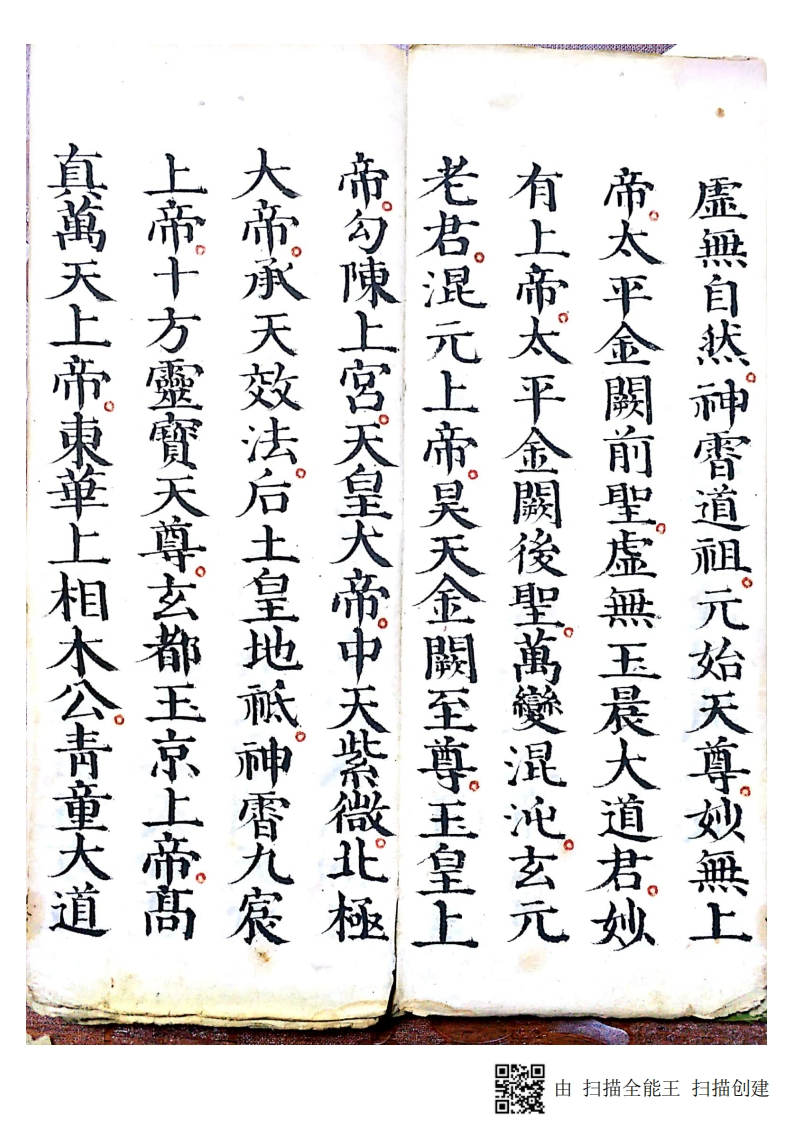 虛無自然。神霄道祖。元始天尊。妙無上
帝。太平金闕前聖。虛無玉晨大道君。妙
有上帝。太平金闕後聖。萬變混沌。玄元
老君。混元上帝。昊天金闕至尊。玉皇上
帝。勾陳上宮。天皇大帝。中天紫微。北極
大帝。承天效法。后土皇地祇。神霄九宸
上帝。十方靈寶天尊。玄都玉京上帝。高
真萬天上帝。東華上相木公。青童大道
由 扫描全能王 扫描创建